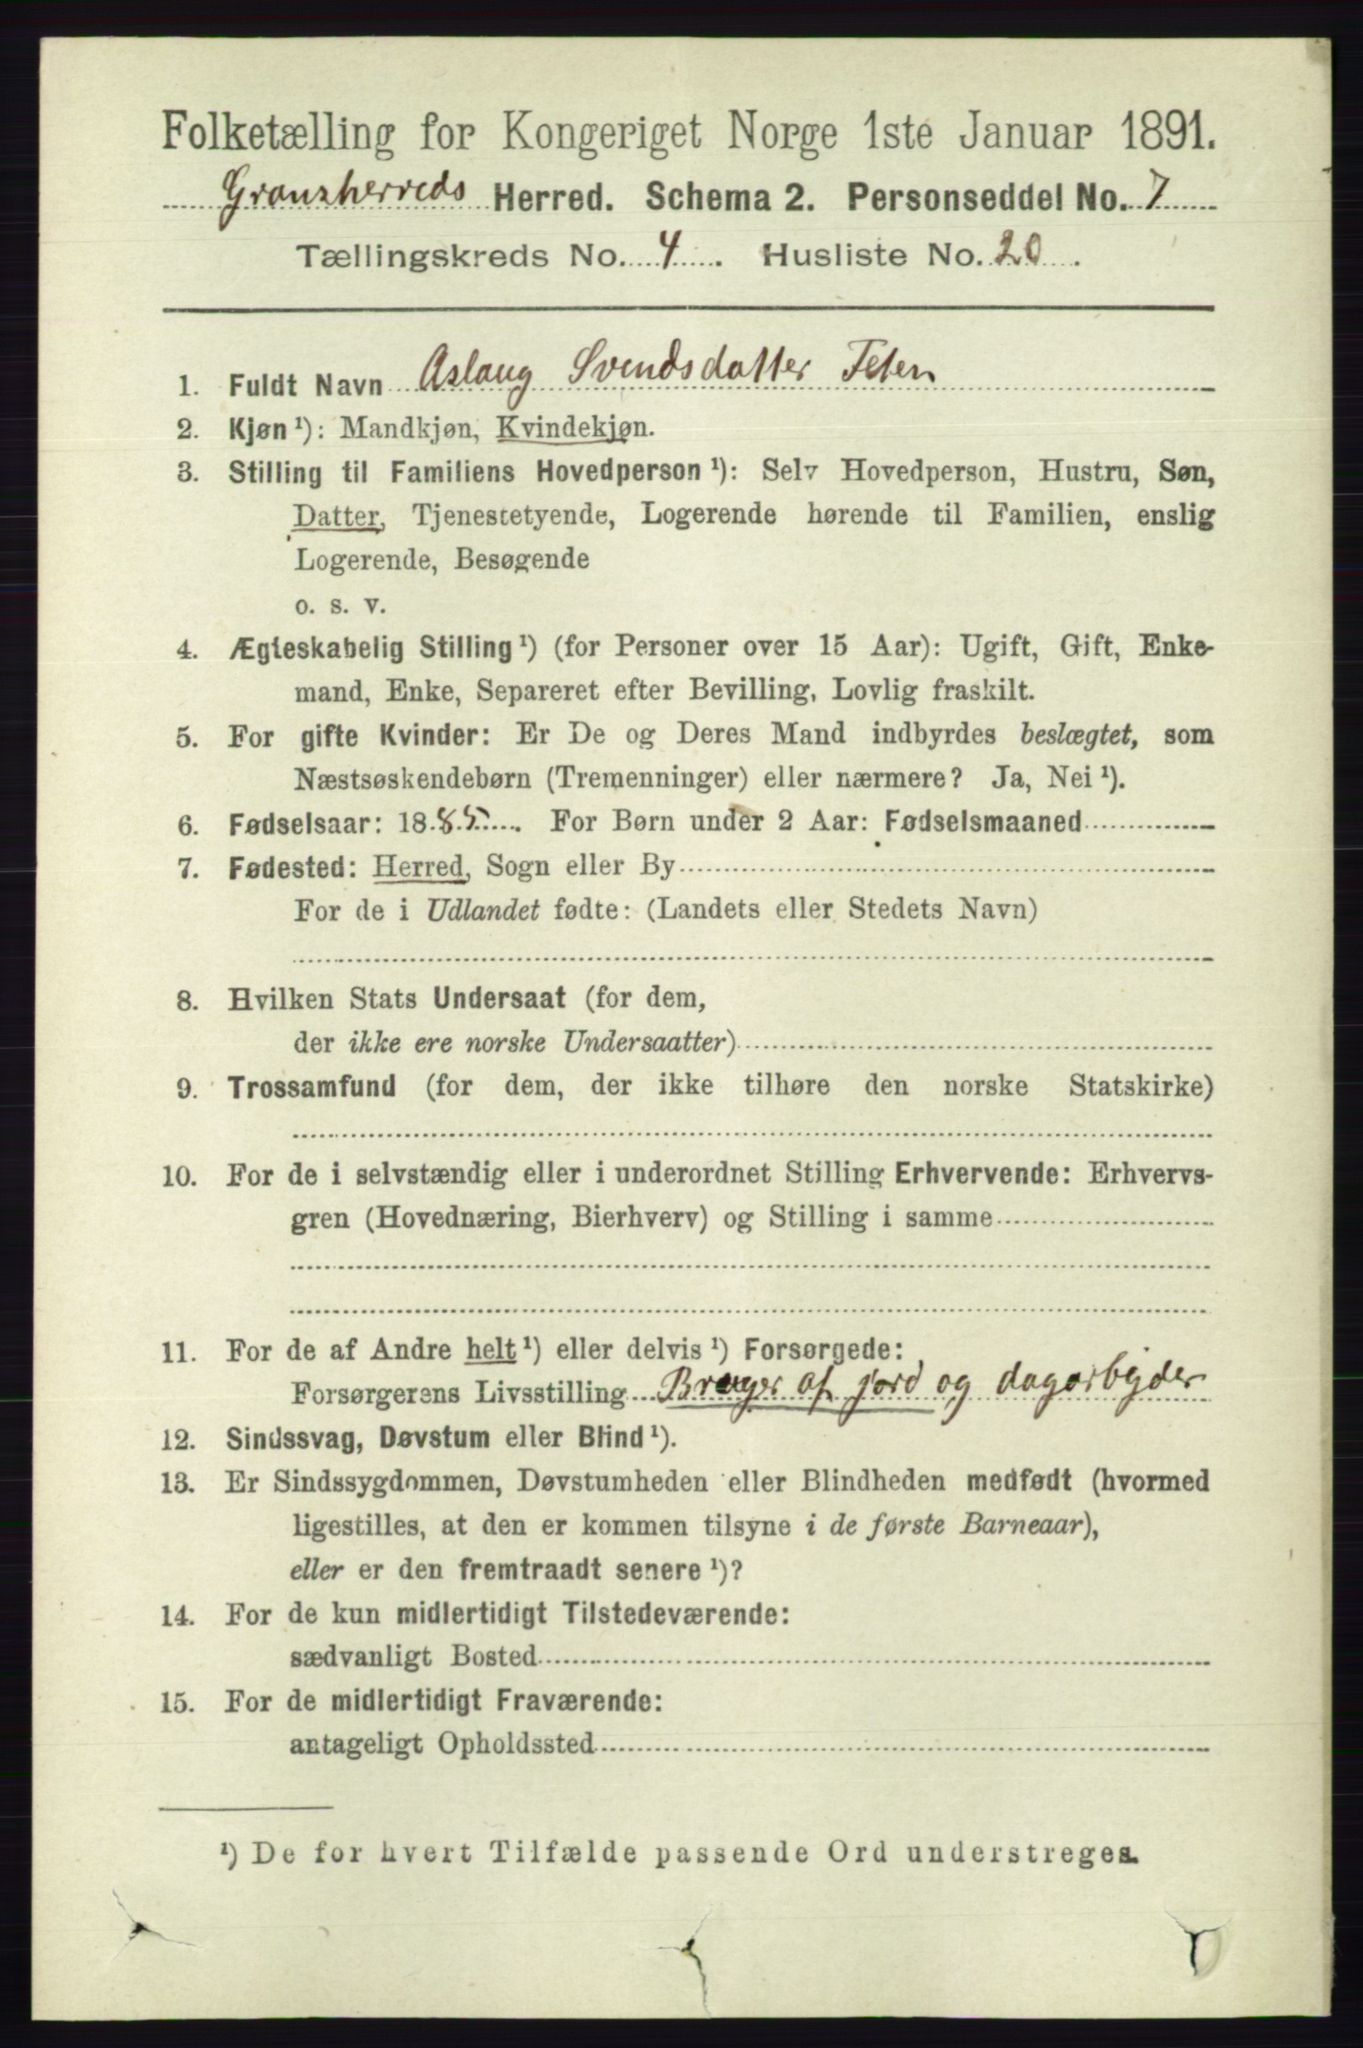 Folketælling for Kongeriget Norge 1ste Januar 1891.
Gransherreds Herred. Schema 2. Personseddel No. 7
Tællingskreds No. 4. Husliste No. 20.
1. Fuldt Navn Aslaug Svendsdatter Feten
2. Kjøn ¹): Mandkjøn, Kvindekjøn.
3. Stilling til Familiens Hovedperson ¹): Selv Hovedperson, Hustru, Søn,
Datter, Tjenestetyende, Logerende hørende til Familien, enslig
Logerende, Besøgende
o. s. v.
4. Ægteskabelig Stilling ¹) (for Personer over 15 Aar): Ugift, Gift, Enke-
mand, Enke, Separeret efter Bevilling, Lovlig fraskilt.
5. For gifte Kvinder: Er De og Deres Mand indbyrdes beslægtet, som
Næstsøskendebørn (Tremenninger) eller nærmere? Ja, Nei ¹).
6. Fødselsaar: 1885. For Børn under 2 Aar: Fødselsmaaned
7. Fødested: Herred, Sogn eller By
For de i Udlandet fødte: (Landets eller Stedets Navn)
8. Hvilken Stats Undersaat (for dem,
der ikke ere norske Undersaatter)
9. Trossamfund (for dem, der ikke tilhøre den norske Statskirke)
10. For de i selvstændig eller i underordnet Stilling Erhvervende: Erhvervs-
gren (Hovednæring, Bierhverv) og Stilling i samme
11. For de af Andre helt ¹) eller delvis ¹) Forsørgede:
Forsørgerens Livsstilling Bruger af jord og dagarbyder
12. Sindssvag, Døvstum eller Blind ¹).
13. Er Sindssygdommen, Døvstumheden eller Blindheden medfødt (hvormed
ligestilles, at den er kommen tilsyne i de første Barneaar),
eller er den fremtraadt senere ¹)?
14. For de kun midlertidigt Tilstedeværende:
sædvanligt Bosted
15. For de midlertidigt Fraværende:
antageligt Opholdssted
¹) De for hvert Tilfælde passende Ord understreges.